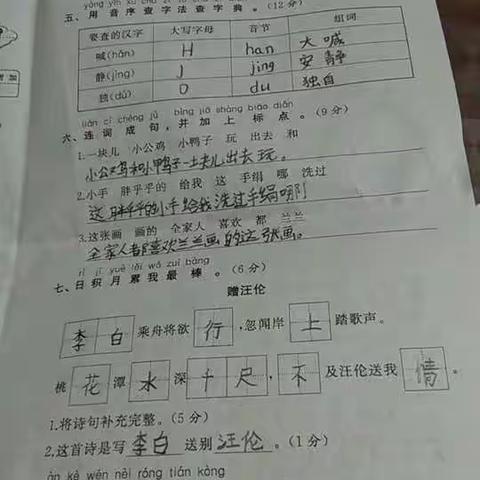 yòng yīn xù chá zì fǎ chá zì diǎn
五、用音序查字法查字典。(12分)
要查的汉字 大写字母 音节 组词
喊(hǎn) H han 大喊
静(jìng) J jing 安静
独(dú) D du 独自
lián cí chéng jù bìng jiā shàng biāo diǎn
六、连词成句,并加上标点。(9分)
1.一块儿 小公鸡 小鸭子 玩 出去 和
小公鸡和小鸭子一块儿出去玩。
2.小手 胖乎乎的 给我 这 手绢 哪 洗过
这胖乎乎的小手给我洗过手绢哪!
3.这张画 画的 全家人 喜欢 都 兰兰
全家人都喜欢兰兰画的这张画。
rì jī yuè lěi wǒ zuì bàng
七、日积月累我最棒。(6分)
赠汪伦
李白乘舟将欲行,忽闻岸上踏歌声。
桃花潭水深千尺,不及汪伦送我情。
1.将诗句补充完整。(5分)
2.这首诗是写李白送别汪伦。(1分)
àn kè wén nèi róng tián kòng